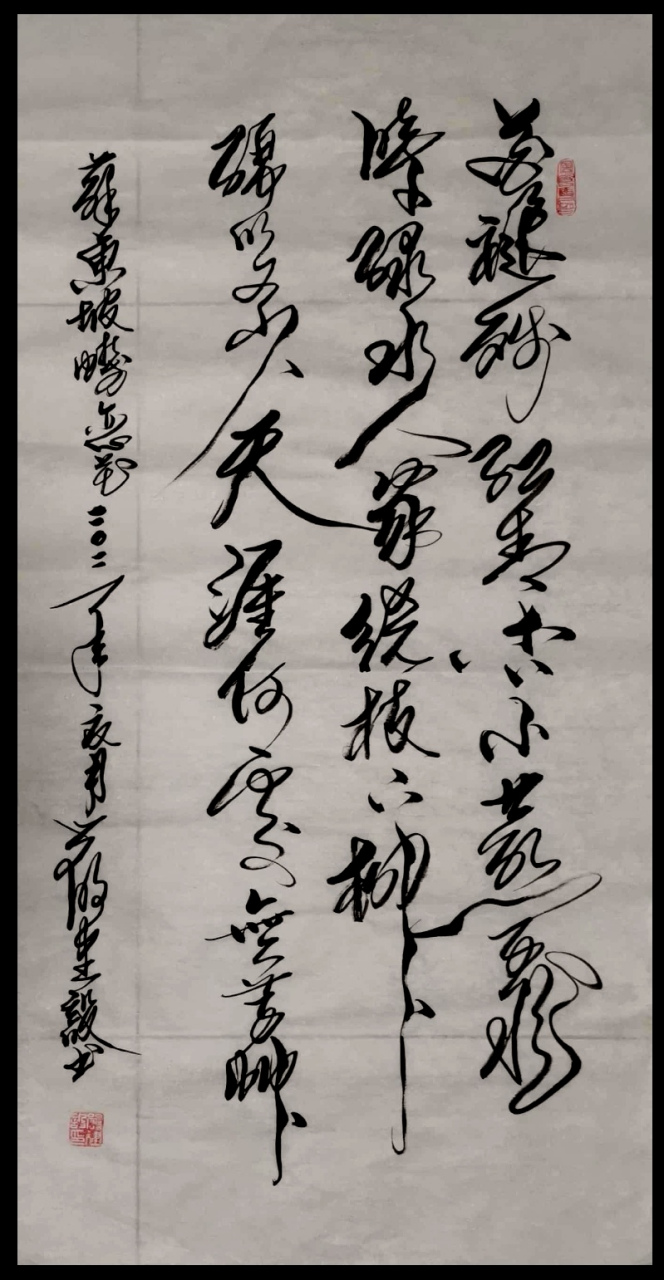 花褪殘紅青杏小燕子飛
時綠水人家繞枝上柳
綿吹又少天涯何處無芳草
蘇東坡蝶恋花二〇二一年夏月